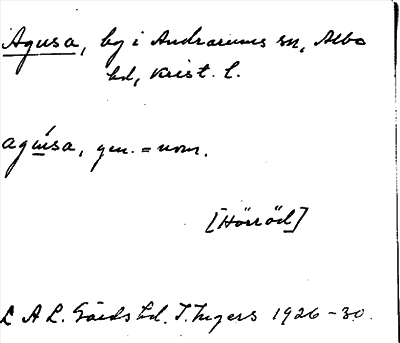 Agusa, by i Andrarums sn, Albo
hd, Krist. l.
agusa, gen. = nom.
[Hörröd]
L A L. Gärds hd. I. Ingers 1926-30.